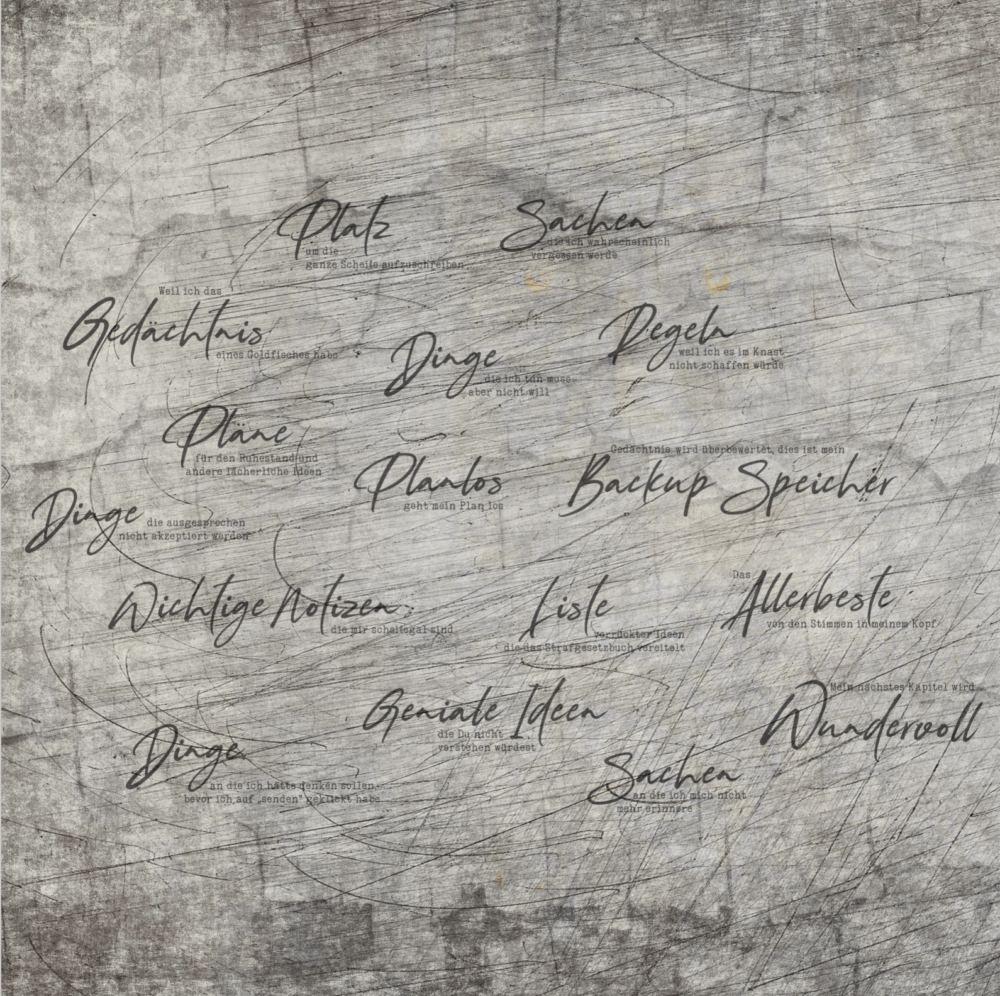 Platz
um die
ganze Scheiße aufzuschreiben
Sachen
die ich wahrscheinlich
vergessen werde
Weil ich das
Gedächtnis
eines Goldfisches habe
Dinge
die ich tun muss
aber nicht will
Regeln
weil ich es im Knast
nicht schaffen würde
Pläne
für den Ruhestand und
andere lächerliche Ideen
Planlos
geht mein Plan los
Gedächtnis wird überbewertet, dies ist mein
Backup Speicher
Dinge
die ausgesprochen
nicht akzeptiert werden
Wichtige Notizen
die mir scheißegal sind
Liste
verrückter Ideen
die das Strafgesetzbuch vereitelt
Das
Allerbeste
von den Stimmen in meinem Kopf
Geniale Ideen
die Du nicht
verstehen würdest
Mein nächstes Kapitel wird
Wundervoll
Dinge
an die ich hätte denken sollen,
bevor ich auf „senden" geklickt habe
Sachen
an die ich mich nicht
mehr erinnere